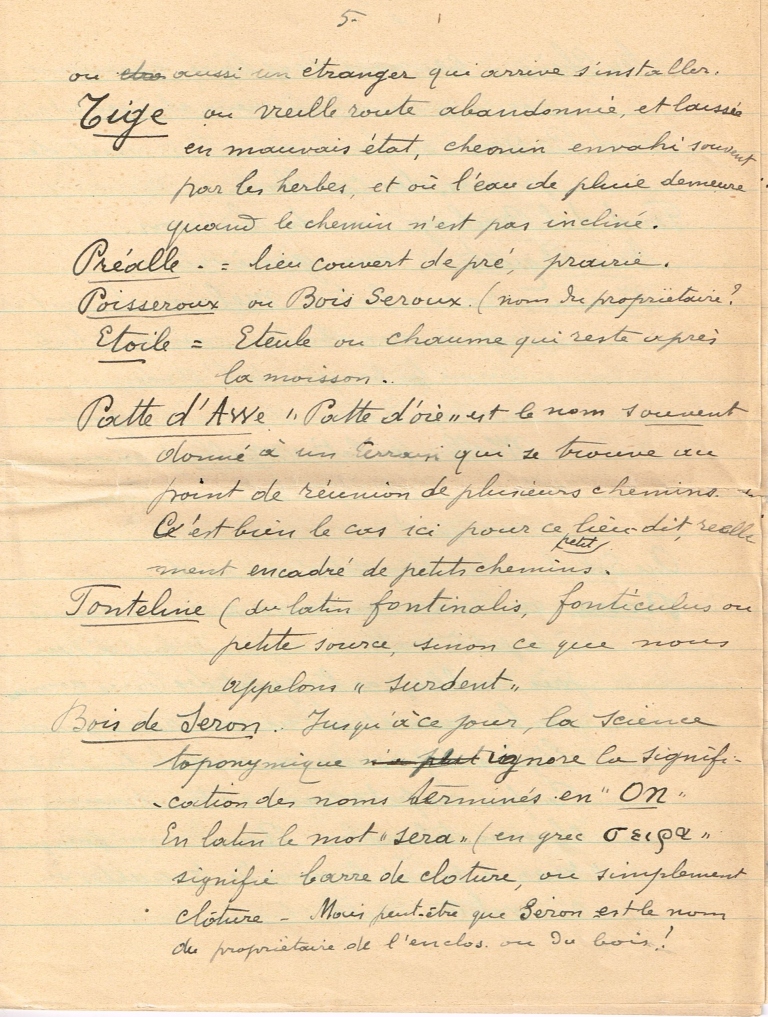 5-
ou etra aussi un étranger qui arrive s'installer.
Tige ou vieille route abandonnée, et laissée
en mauvais état, chemin envahi souvent
par les herbes, et où l'eau de pluie demeure
quand le chemin n'est pas incliné.
Préalle . = lieu couvert de pré, prairie.
Poisseroux ou Bois Seroux. (nom du propriétaire?
Etoile = Eteule ou chaume qui reste après
la moisson..
Patte d'Awe "Patte d'oie" est le nom souvent
donné à un terrain qui se trouve au
point de réunion de plusieurs chemins.
C'est bien le cas ici pour ce lieu-dit, réelle
petit
ment encadré de petits chemins.
Fonteline (du latin fontinalis, fonticulus ou
petite source, sinon ce que nous
appelons "surdent"
Bois de Seron. Jusqu'à ce jour, la science
toponymique n'a plut ignore la signifi-
-cation des noms terminés en "ON"
En latin le mot "sera" (en grec σειρα"
signifie barre de cloture, ou simplement
clôture - Mais peut-être que Séron est le nom
du propriétaire de l'enclos ou du bois!